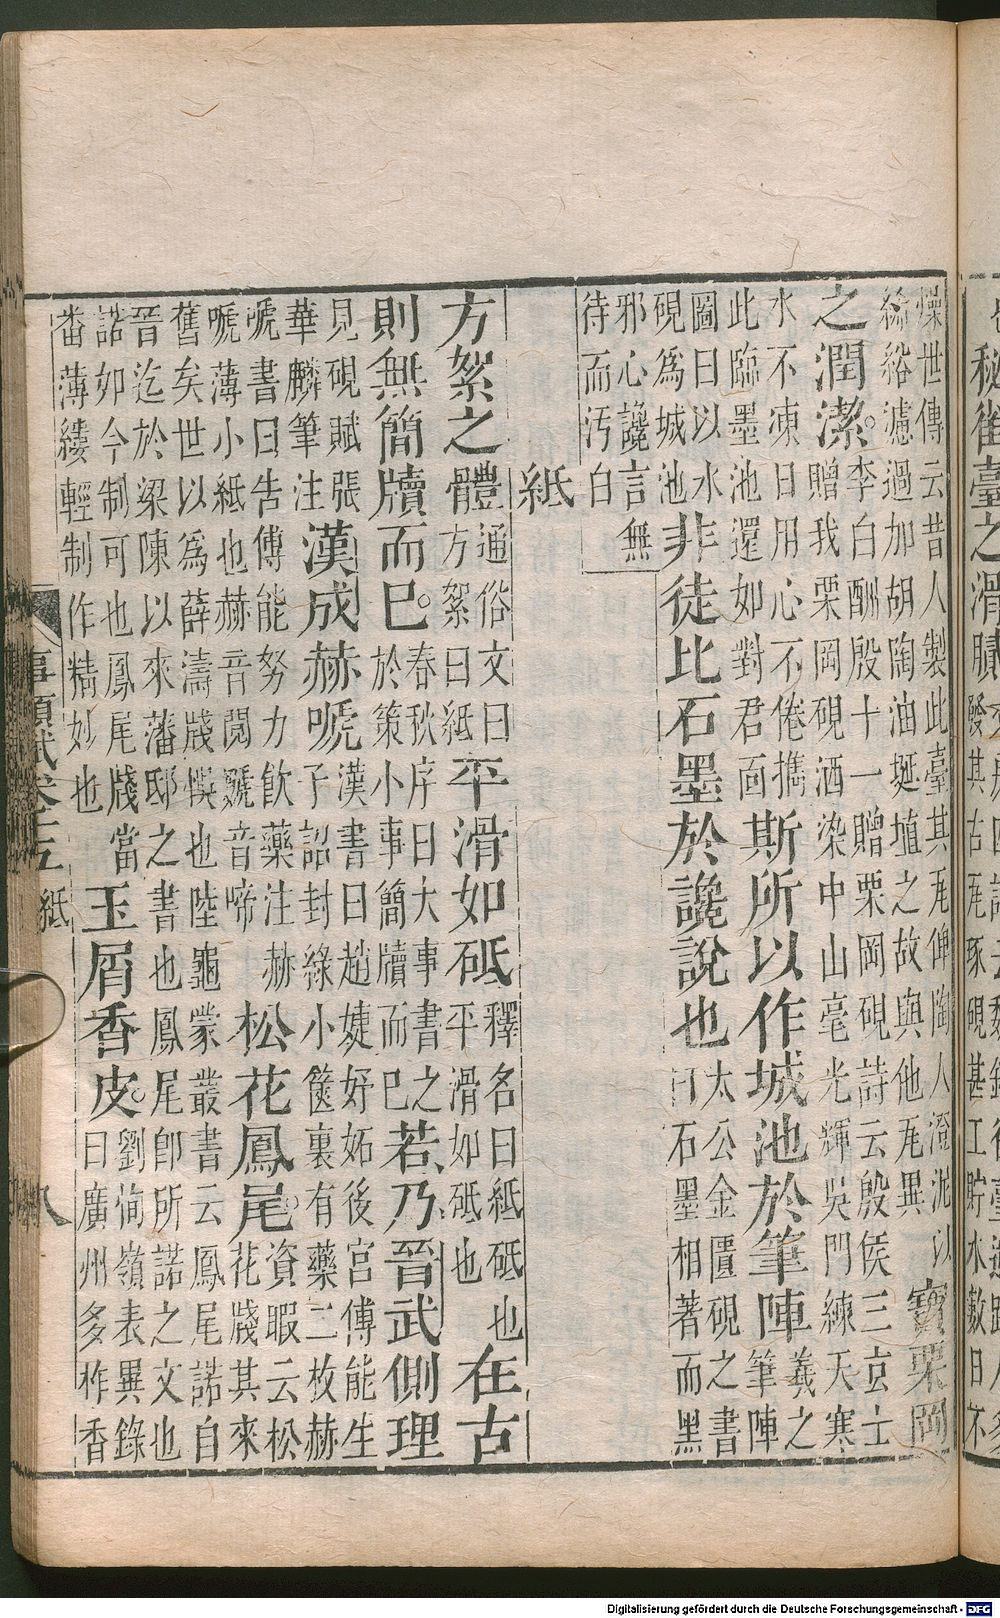 秘雀臺之滑膩
發其古瓦琢硯甚工貯水數日不
燥世傳云昔人製此臺其瓦俾陶人澄泥以
絺綌濾過加胡陶油埏埴之故與他瓦異
寶栗岡
之潤潔。
李白酬殷十一贈栗岡硯詩云殷侯三玄士
贈我栗岡硯洒染中山毫光輝吳門練天寒
水不凍日用心不倦攜
此臨墨池還如對君面
斯所以作城池於筆陣
羲之
筆陣
圖曰以水
硯為城池
非徒比石墨於讒說也
太公金匱硯之書
曰石墨相著而黑
邪心讒言無
待而汚白
紙
方絮之體
通俗文曰
方絮曰紙
平滑如砥
釋名曰紙砥也
平滑如砥也
在古
則無簡牘而已。
春秋序曰大事書之
於策小事簡牘而已
若乃晉武側理
見硯賦張
華麟筆注
漢成赫㖷
漢書曰趙婕妤妬後宮傅能生
子詔封綠小篋裏有藥二枚赫
㖷書曰告傅能努力飲藥注赫
㖷薄小紙也赫音鬩㖷音啼
松花鳳尾。
資暇云松
花牋其來
舊矣世以為薛濤牋悞也陸龜蒙叢書云鳳尾諾自
晉迄於梁陳以來藩邸之書也鳳尾即所諾之文也
諾如今制可也鳳尾牋當
畨薄縷輕制作精妙也
玉屑香皮。
劉恂嶺表異錄
曰廣州多柞香
事類賦卷十五 紙 八
Digitalisierung gefördert durch die Deutsche Forschungsgemeinschaft - DFG